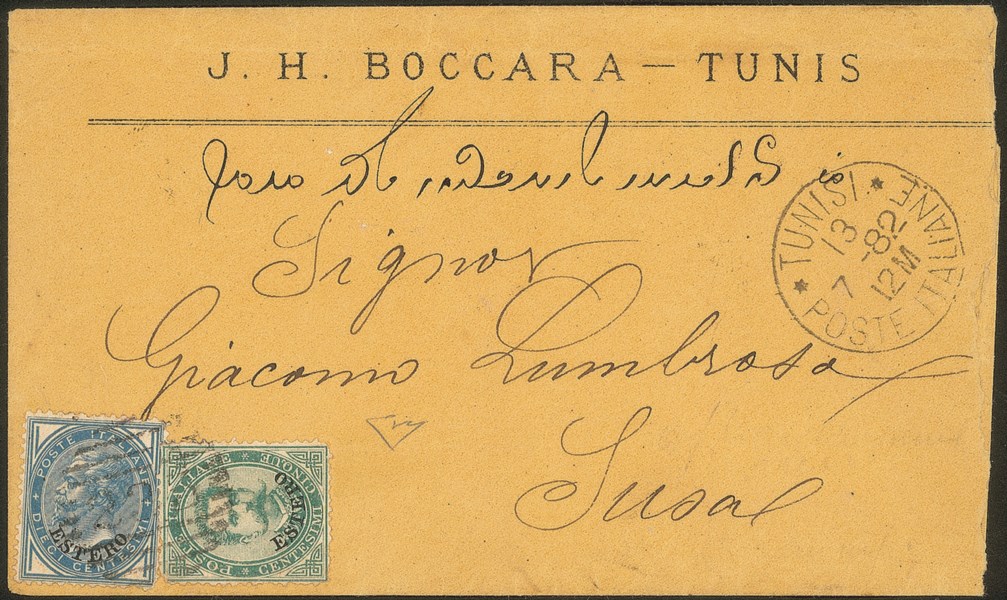 J. H. BOCCARA — TUNIS
Signor
Giacomo Lumbroso
Susa
TUNISI
POSTE ITALIANE
13
7
-82
12M
POSTE ITALIANE
DIECI CENTESIMI
ESTERO
POSTE ITALIANE
CENTESIMI CINQUE
ESTERO